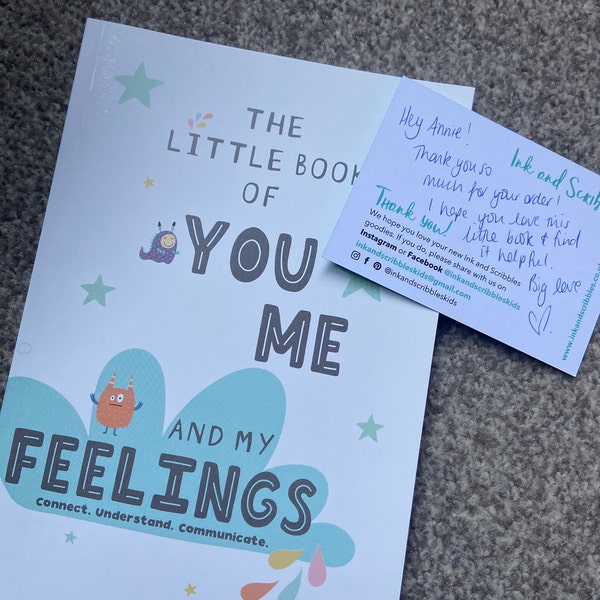 THE
LITTLE BOOK
OF
YOU
ME
AND MY
FEELINGS
Connect. Understand. Communicate.
Hey Annie!
Thank you so
much for your order!
I hope you love this
little book & find
it helpful.
Big love
Ink and Scrib
Thank you!
We hope you love your new Ink and Scribbles
goodies. If you do, please share with us on
Instagram or Facebook @inkandscribbleskids
inkandscribbleskids@gmail.com
@inkandscribbleskids
www.inkandscribbles.co.u